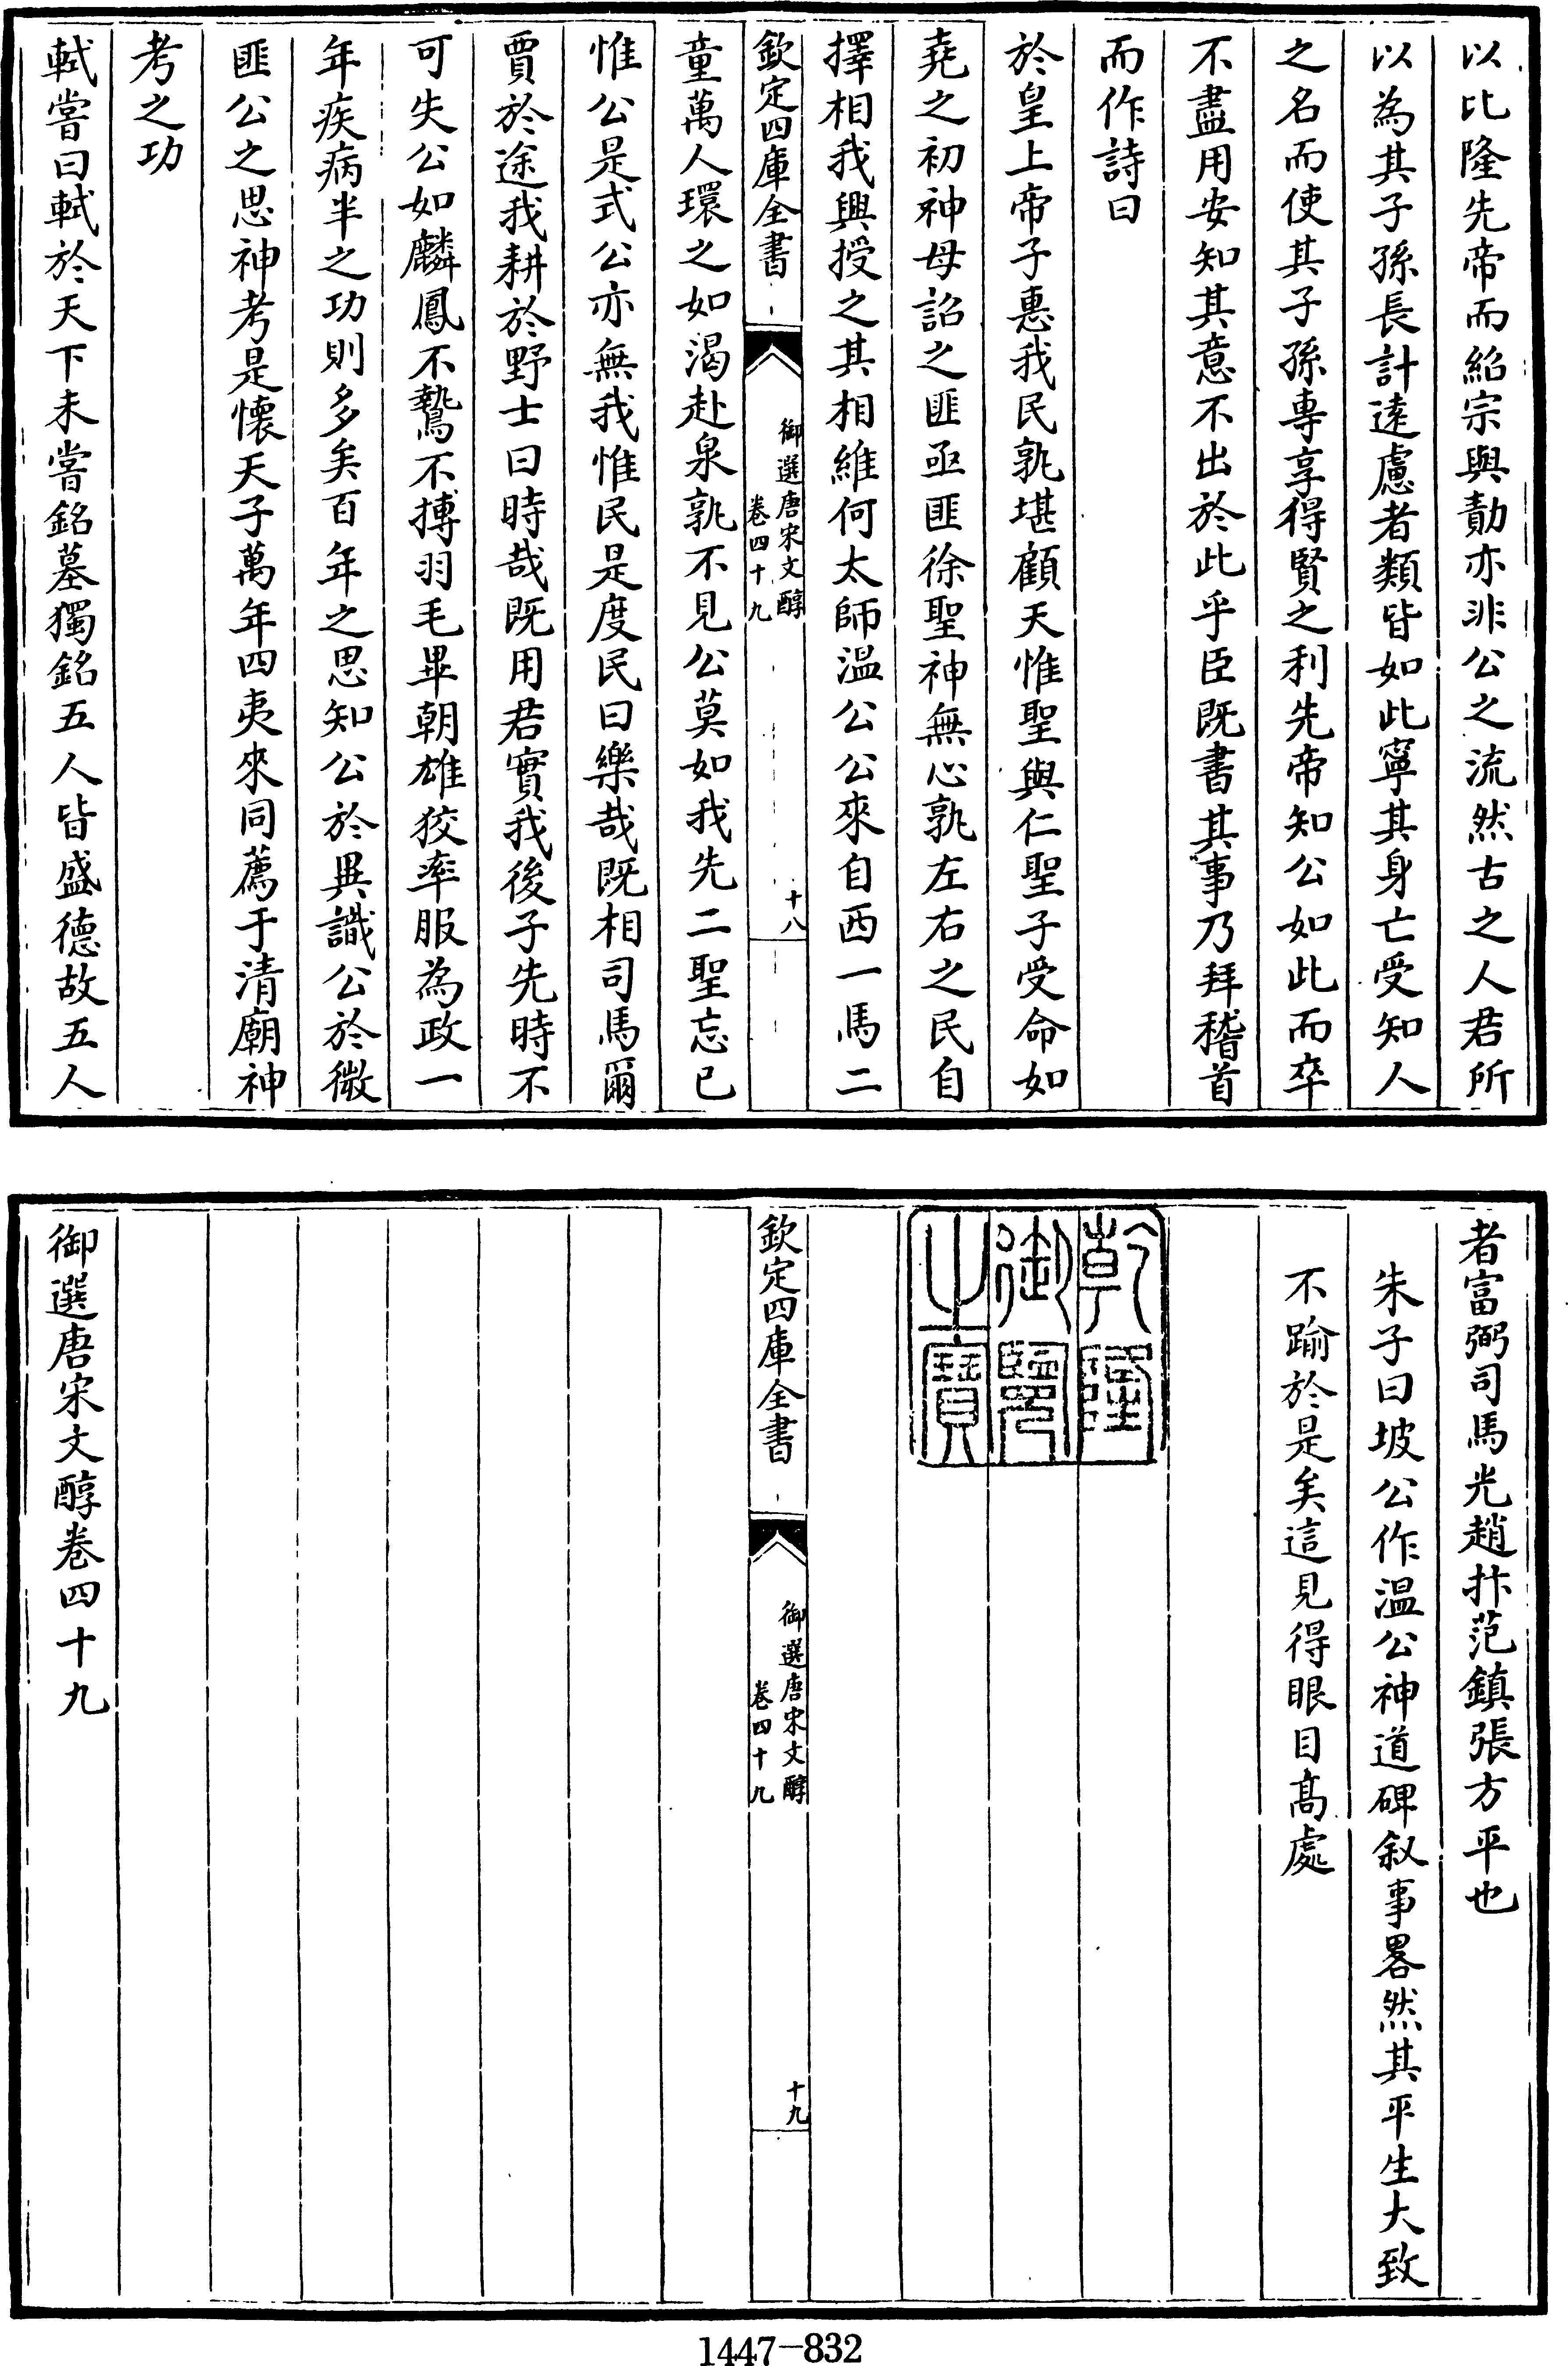 以比隆先帝而紹宗與勣亦非公之流然古之人君所
以為其子孫長計遠慮者類皆如此寧其身亡受知人
之名而使其子孫專享得賢之利先帝知公如此而卒
不盡用安知其意不出於此乎臣既書其事乃拜稽首
而作詩曰
於皇上帝子惠我民孰堪顧天惟聖與仁聖子受命如
堯之初神母詔之匪亟匪徐聖神無心孰左右之民自
擇相我興授之其相維何太師溫公公來自西一馬二
欽定四庫全書
御選唐宋文醇
卷四十九
十八
童萬人環之如渴赴泉孰不見公莫如我先二聖忘已
惟公是式公亦無我惟民是度民曰樂哉既相司馬爾
賈於途我耕於野士曰時哉既用君實我後子先時不
可失公如麟鳳不鷙不搏羽毛畢朝雄狡率服為政一
年疾病半之功則多矣百年之思知公於異識公於微
匪公之思神考是懷天子萬年四夷來同薦于清廟神
考之功
軾嘗曰軾於天下未嘗銘墓獨銘五人皆盛德故五人
者富弼司馬光趙抃范鎮張方平也
朱子曰坡公作溫公神道碑叙事畧然其平生大致
不踰於是矣這見得眼目高處
乾隆
御覽
之寶
欽定四庫全書
御選唐宋文醇
卷四十九
十九
御選唐宋文醇卷四十九
1447-832